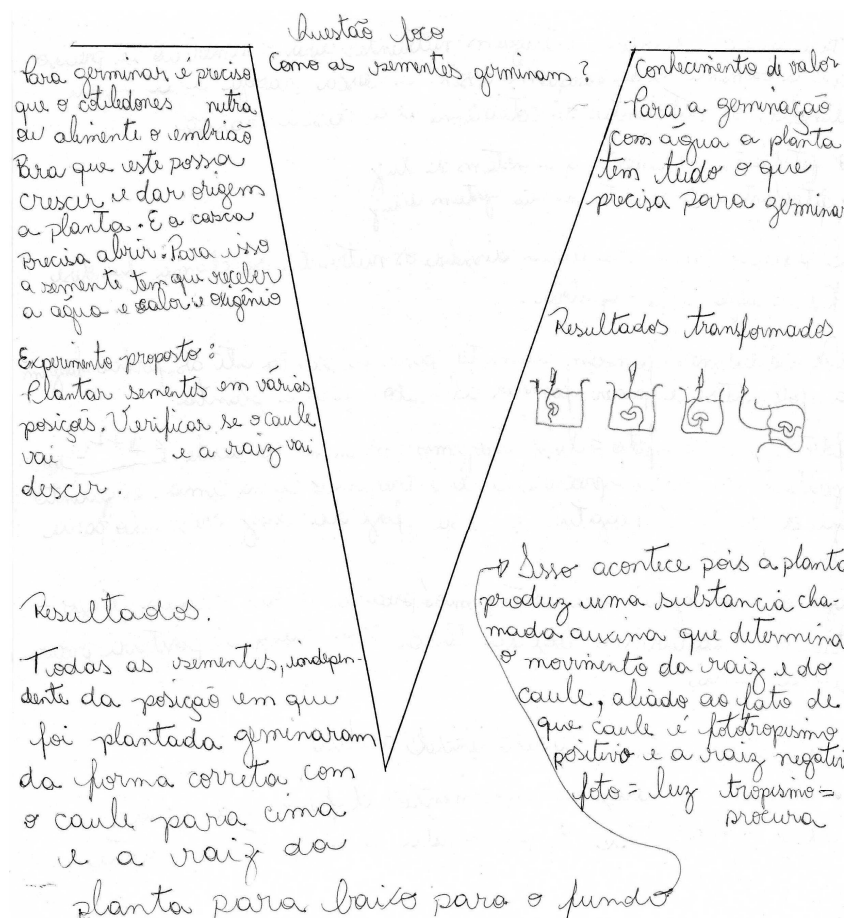 Questão foco
Como as sementes germinam?
Para germinar é preciso
que o cotiledones nutra
ou alimente o embrião
Para que este possa
crescer e dar origem
a planta. E a casca
Precisa abrir. Para isso
a semente tem que receber
a água e calor e oxigênio
Experimento proposto:
Plantar sementes em várias
posições. Verificar se o caule
vai e a raiz vai
descer.
Resultados.
Todas as sementes, indepen-
dente da posição em que
foi plantada geminaram
da forma correta com
o caule para cima
e a raiz da
planta para baixo para o fundo
Conhecimento de valor
Para a geminação
com água a planta
tem tudo o que
precisa para germinar
Resultados transformados
Isso acontece pois a planta
produz uma substancia cha-
mada auxina que determina
o movimento da raiz e do
caule, aliado ao fato de
que caule é fototropismo
positivo e a raiz negativ
foto = luz tropismo =
procura